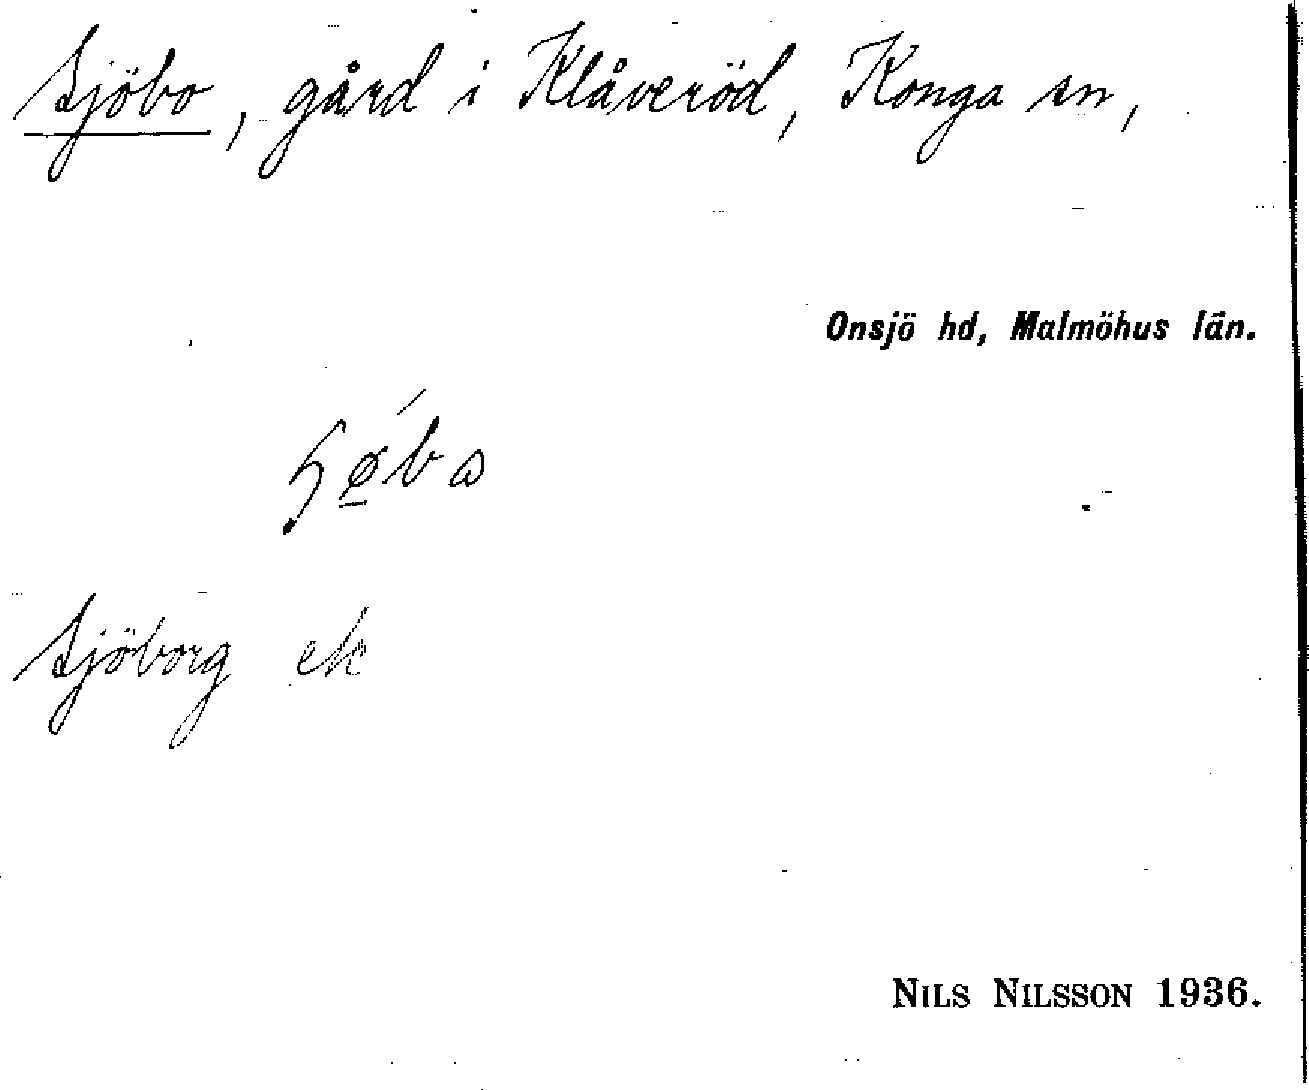 Sjöbo, gård i Klåveröd, Konga sn,
Onsjö hd, Malmöhus län.
Sjöborg ek
NILS NILSSON 1936.